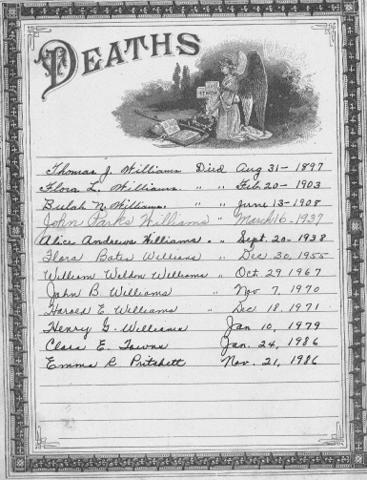 DEATHS
Thomas J. Williams Died Aug 31 - 1897
Flora L. Williams. " " Feb. 20 - 1903
Beulah N. Williams. " " June 13 - 1908
John Parks Williams " March 16 - 1937
Alice Andrews Williams. " " Sept. 20 - 1938
Flora Bates Williams " Dec 30, 1955
William Weldon Williams " Oct. 29, 1967
John B. Williams " Nov. 7, 1970
Harold E. Williams " Dec 18, 1971
Henry G. Williams Jan 10, 1979
Clara E. Towns Jan. 24, 1986
Emma R Pritchett Nov. 21, 1986